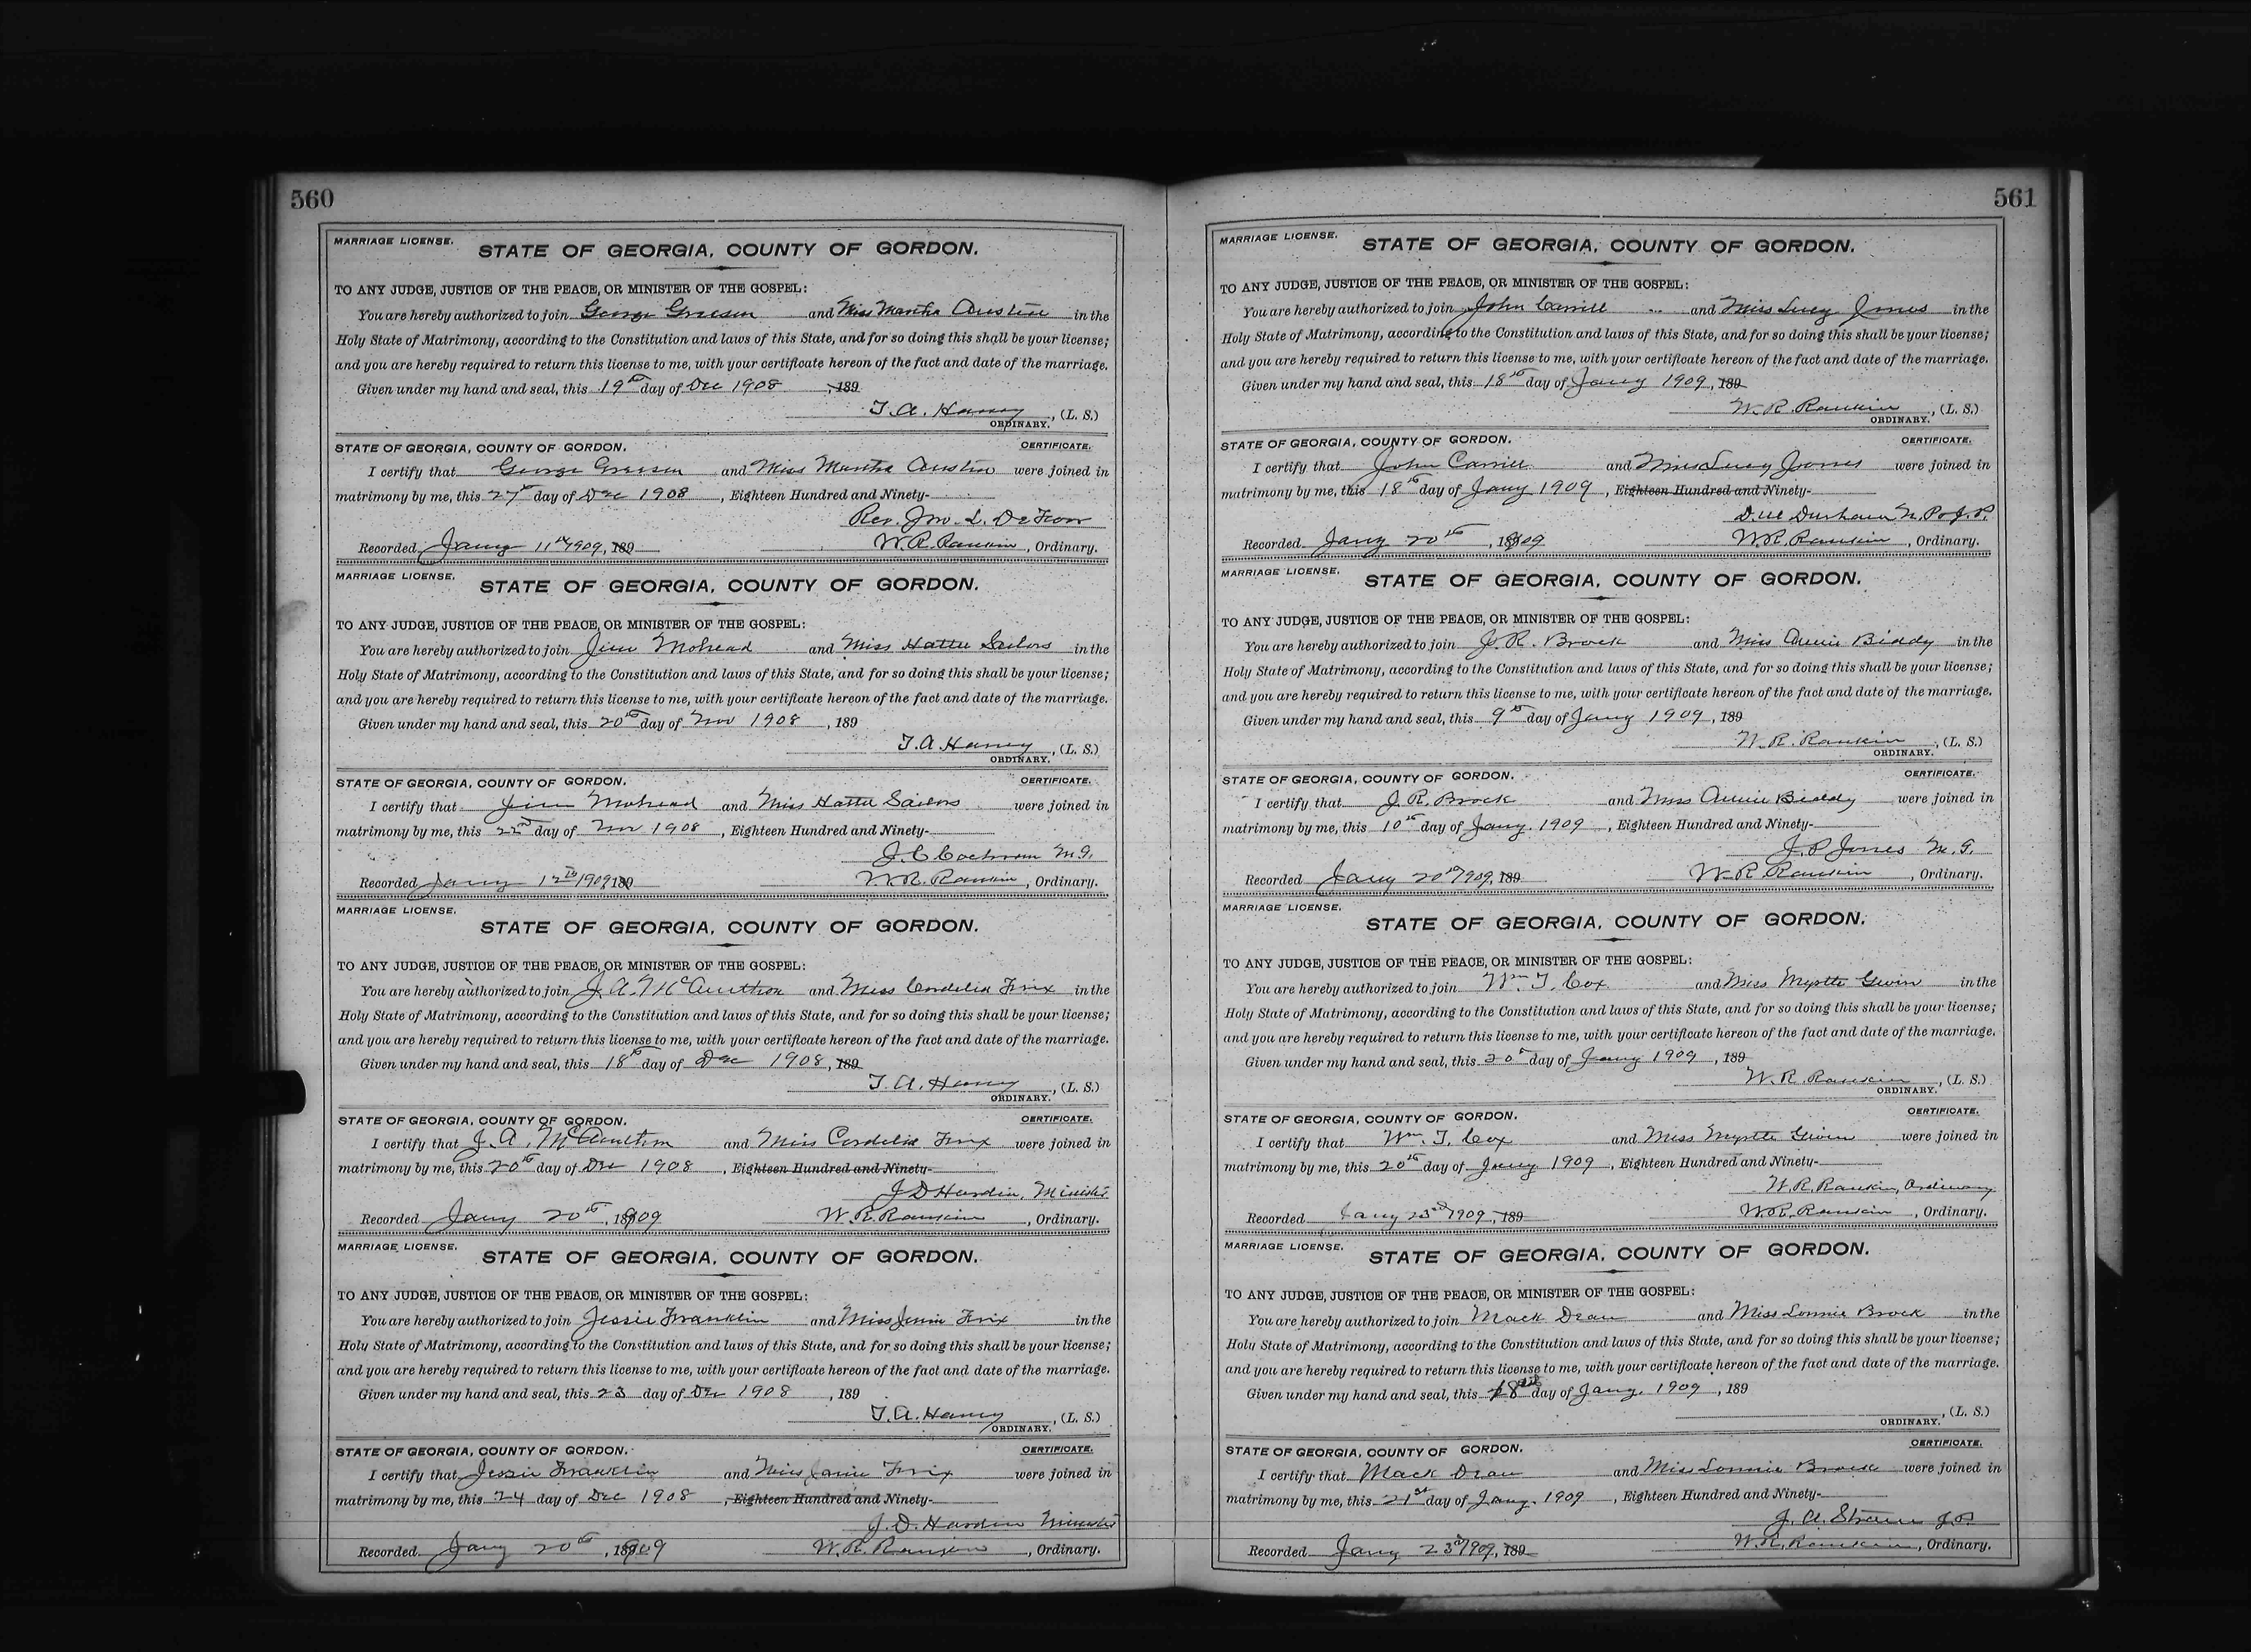 560
MARRIAGE LICENSE.
STATE OF GEORGIA, COUNTY OF GORDON.
TO ANY JUDGE, JUSTICE OF THE PEACE, OR MINISTER OF THE GOSPEL:
You are hereby authorized to join George and Miss Martha Austin in the
Holy State of Matrimony, according to the Constitution and laws of this State, and for so doing this shall be your license;
and you are hereby required to return this license to me, with your certificate hereon of the fact and date of the marriage.
Given under my hand and seal, this 19th day of Dec 1908, 189
T. A. , (L. S.)
ORDINARY.
STATE OF GEORGIA, COUNTY OF GORDON. CERTIFICATE.
I certify that George and Miss Martha Austin were joined in
matrimony by me, this 27th day of Dec 1908, Eighteen Hundred and Ninety-
Rev. Jno. L.
Recorded Jany 11th 1909, 189 W. R. Rankin, Ordinary.
MARRIAGE LICENSE.
STATE OF GEORGIA, COUNTY OF GORDON.
TO ANY JUDGE, JUSTICE OF THE PEACE, OR MINISTER OF THE GOSPEL:
You are hereby authorized to join Jim Mohead and Miss Hattie Sailors in the
Holy State of Matrimony, according to the Constitution and laws of this State, and for so doing this shall be your license;
and you are hereby required to return this license to me, with your certificate hereon of the fact and date of the marriage.
Given under my hand and seal, this 20th day of Nov 1908, 189
T. A. , (L. S.)
ORDINARY.
STATE OF GEORGIA, COUNTY OF GORDON. CERTIFICATE.
I certify that Jim Mohead and Miss Hattie Sailors were joined in
matrimony by me, this 22nd day of Nov 1908, Eighteen Hundred and Ninety-
J. C. Cochran M.G.
Recorded Jany 12th 1909, 189 W. R. Rankin, Ordinary.
MARRIAGE LICENSE.
STATE OF GEORGIA, COUNTY OF GORDON.
TO ANY JUDGE, JUSTICE OF THE PEACE, OR MINISTER OF THE GOSPEL:
You are hereby authorized to join J. A. and Miss Cordelia Frix in the
Holy State of Matrimony, according to the Constitution and laws of this State, and for so doing this shall be your license;
and you are hereby required to return this license to me, with your certificate hereon of the fact and date of the marriage.
Given under my hand and seal, this 18th day of Dec 1908, 189
T. A. , (L. S.)
ORDINARY.
STATE OF GEORGIA, COUNTY OF GORDON. CERTIFICATE.
I certify that J. A. and Miss Cordelia Frix were joined in
matrimony by me, this 20th day of Dec 1908, Eighteen Hundred and Ninety-
J D Hardin, Minister
Recorded Jany 20th, 1909 W. R. Rankin, Ordinary.
MARRIAGE LICENSE.
STATE OF GEORGIA, COUNTY OF GORDON.
TO ANY JUDGE, JUSTICE OF THE PEACE, OR MINISTER OF THE GOSPEL:
You are hereby authorized to join Jessie Franklin and Miss Frix in the
Holy State of Matrimony, according to the Constitution and laws of this State, and for so doing this shall be your license;
and you are hereby required to return this license to me, with your certificate hereon of the fact and date of the marriage.
Given under my hand and seal, this 23 day of Dec 1908, 189
T. A. , (L. S.)
ORDINARY.
STATE OF GEORGIA, COUNTY OF GORDON. CERTIFICATE.
I certify that Jessie Franklin and Miss Frix were joined in
matrimony by me, this 24 day of Dec 1908, Eighteen Hundred and Ninety-
J. D. Hardin Minister
Recorded Jany 20th, 1909 W. R. Rankin, Ordinary.
561
MARRIAGE LICENSE.
STATE OF GEORGIA, COUNTY OF GORDON.
TO ANY JUDGE, JUSTICE OF THE PEACE, OR MINISTER OF THE GOSPEL:
You are hereby authorized to join John and Miss Lucy Jones in the
Holy State of Matrimony, according to the Constitution and laws of this State, and for so doing this shall be your license;
and you are hereby required to return this license to me, with your certificate hereon of the fact and date of the marriage.
Given under my hand and seal, this 18th day of Jany 1909, 189
W. R. Rankin, (L. S.)
ORDINARY.
STATE OF GEORGIA, COUNTY OF GORDON. CERTIFICATE.
I certify that John and Miss Lucy Jones were joined in
matrimony by me, this 18th day of Jany 1909, Eighteen Hundred and Ninety-
Durham N. P. & J. P.
Recorded Jany 20th, 1909 W. R. Rankin, Ordinary.
MARRIAGE LICENSE.
STATE OF GEORGIA, COUNTY OF GORDON.
TO ANY JUDGE, JUSTICE OF THE PEACE, OR MINISTER OF THE GOSPEL:
You are hereby authorized to join J. R. Brock and Miss Annie Biddy in the
Holy State of Matrimony, according to the Constitution and laws of this State, and for so doing this shall be your license;
and you are hereby required to return this license to me, with your certificate hereon of the fact and date of the marriage.
Given under my hand and seal, this 9th day of Jany 1909, 189
W. R. Rankin, (L. S.)
ORDINARY.
STATE OF GEORGIA, COUNTY OF GORDON. CERTIFICATE.
I certify that J. R. Brock and Miss Annie Biddy were joined in
matrimony by me, this 10th day of Jany. 1909, Eighteen Hundred and Ninety-
J. P. Jones M. G.
Recorded Jany 20th 1909, 189 W. R. Rankin, Ordinary.
MARRIAGE LICENSE.
STATE OF GEORGIA, COUNTY OF GORDON.
TO ANY JUDGE, JUSTICE OF THE PEACE, OR MINISTER OF THE GOSPEL:
You are hereby authorized to join Wm. T. Cox and Miss Myrtle in the
Holy State of Matrimony, according to the Constitution and laws of this State, and for so doing this shall be your license;
and you are hereby required to return this license to me, with your certificate hereon of the fact and date of the marriage.
Given under my hand and seal, this 20th day of Jany 1909, 189
W. R. Rankin, (L. S.)
ORDINARY.
STATE OF GEORGIA, COUNTY OF GORDON. CERTIFICATE.
I certify that Wm. T. Cox and Miss Myrtle were joined in
matrimony by me, this 20th day of Jany 1909, Eighteen Hundred and Ninety-
W. R. Rankin, Ordinary
Recorded Jany 23rd 1909, 189 W. R. Rankin, Ordinary.
MARRIAGE LICENSE.
STATE OF GEORGIA, COUNTY OF GORDON.
TO ANY JUDGE, JUSTICE OF THE PEACE, OR MINISTER OF THE GOSPEL:
You are hereby authorized to join Mack and Miss Lonnie Brock in the
Holy State of Matrimony, according to the Constitution and laws of this State, and for so doing this shall be your license;
and you are hereby required to return this license to me, with your certificate hereon of the fact and date of the marriage.
Given under my hand and seal, this day of Jany. 1909, 189
, (L. S.)
ORDINARY.
STATE OF GEORGIA, COUNTY OF GORDON. CERTIFICATE.
I certify that Mack and Miss Lonnie Brock were joined in
matrimony by me, this 21st day of Jany. 1909, Eighteen Hundred and Ninety-
J. A. J.P.
Recorded Jany 23rd 1909, 189 W. R. Rankin, Ordinary.